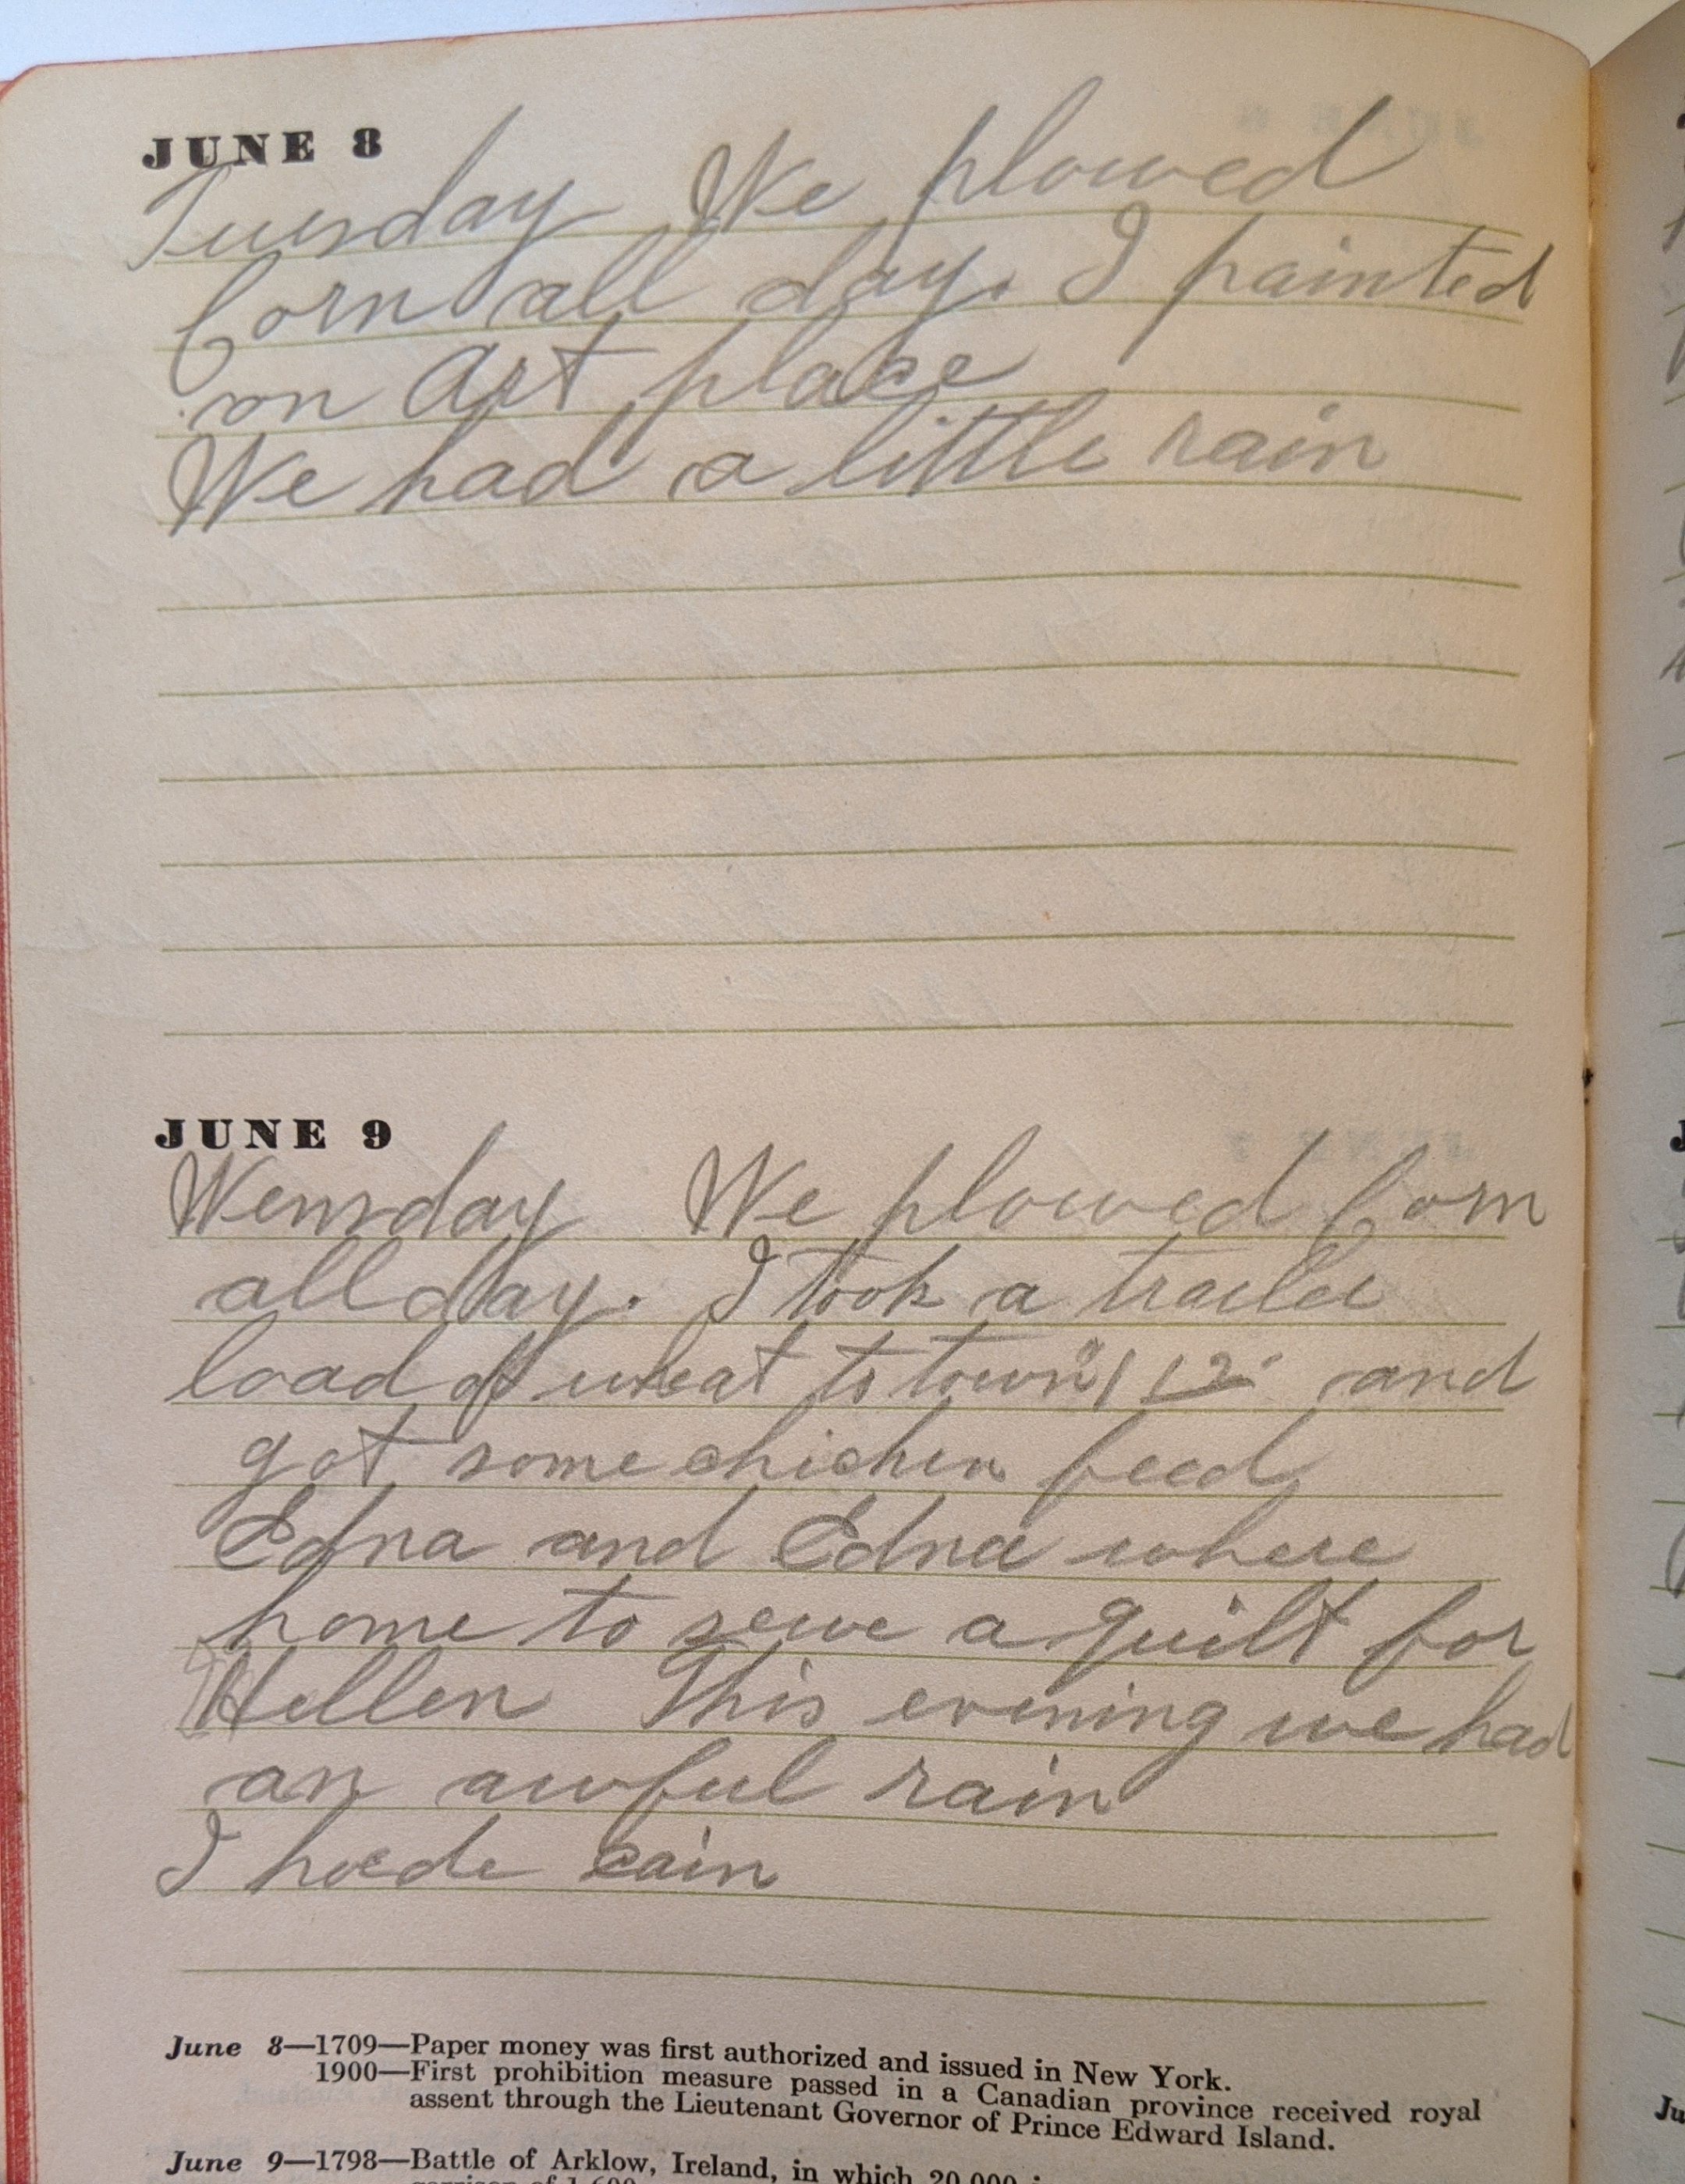 JUNE 8
Tuesday We plowed
Corn all day. I painted
on Art place
We had a little rain
JUNE 9
Wensday We plowed Corn
all day. I took a trailer
load of wheat to town and
got some chicken feed
Edna and Edna where
home to sewe a quilt for
Hellen This evening we had
an awful rain
I hoede cain
June 8—1709—Paper money was first authorized and issued in New York.
1900—First prohibition measure passed in a Canadian province received royal
assent through the Lieutenant Governor of Prince Edward Island.
June 9—1798—Battle of Arklow, Ireland, in which 20,000